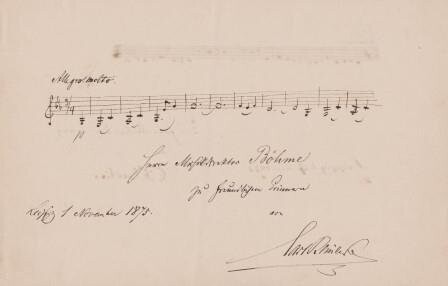 Allegro molto.
Herrn Musikdirektor Böhme
zu freundlichem Erinnern
von
Leipzig 1. November 1875.
Carl